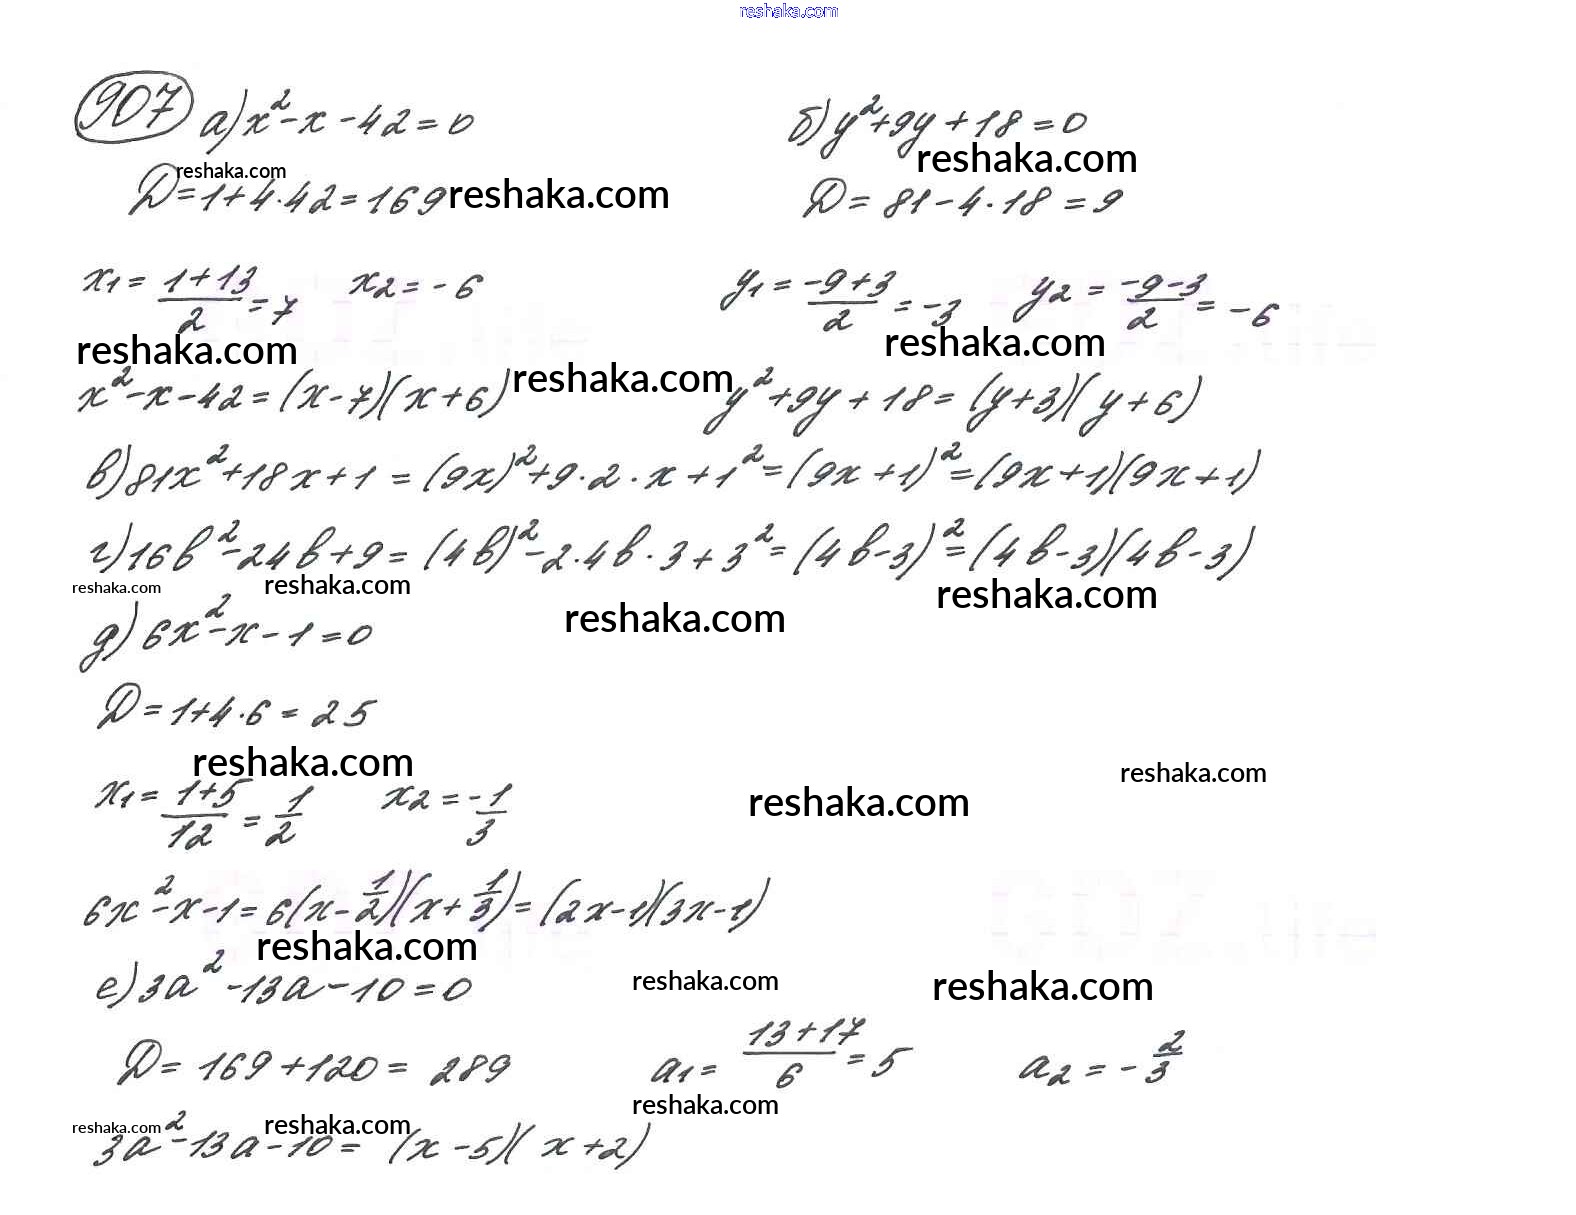 reshaka.com
907 а) x²-x-42=0 б) y²+9y+18=0
reshaka.com reshaka.com
Д=1+4·42=169 reshaka.com Д=81-4·18=9
x₁=(1+13)/2=7 x₂=-6 y₁=(-9+3)/2=-3 y₂=(-9-3)/2=-6
reshaka.com reshaka.com
x²-x-42=(x-7)(x+6) reshaka.com y²+9y+18=(y+3)(y+6)
в) 81x²+18x+1=(9x)²+9·2·x+1²=(9x+1)²=(9x+1)(9x+1)
г) 16b²-24b+9=(4b)²-2·4b·3+3²=(4b-3)²=(4b-3)(4b-3)
reshaka.com reshaka.com reshaka.com reshaka.com
д) 6x²-x-1=0
Д=1+4·6=25
reshaka.com reshaka.com
x₁=(1+5)/12=1/2 x₂=-1/3 reshaka.com
6x²-x-1=6(x-1/2)(x+1/3)=(2x-1)(3x-1)
reshaka.com
е) 3a²-13a-10=0 reshaka.com reshaka.com
Д=169+120=289 a₁=(13+17)/6=5 a₂=-2/3
reshaka.com
reshaka.com reshaka.com
3a²-13a-10=(x-5)(x+2)